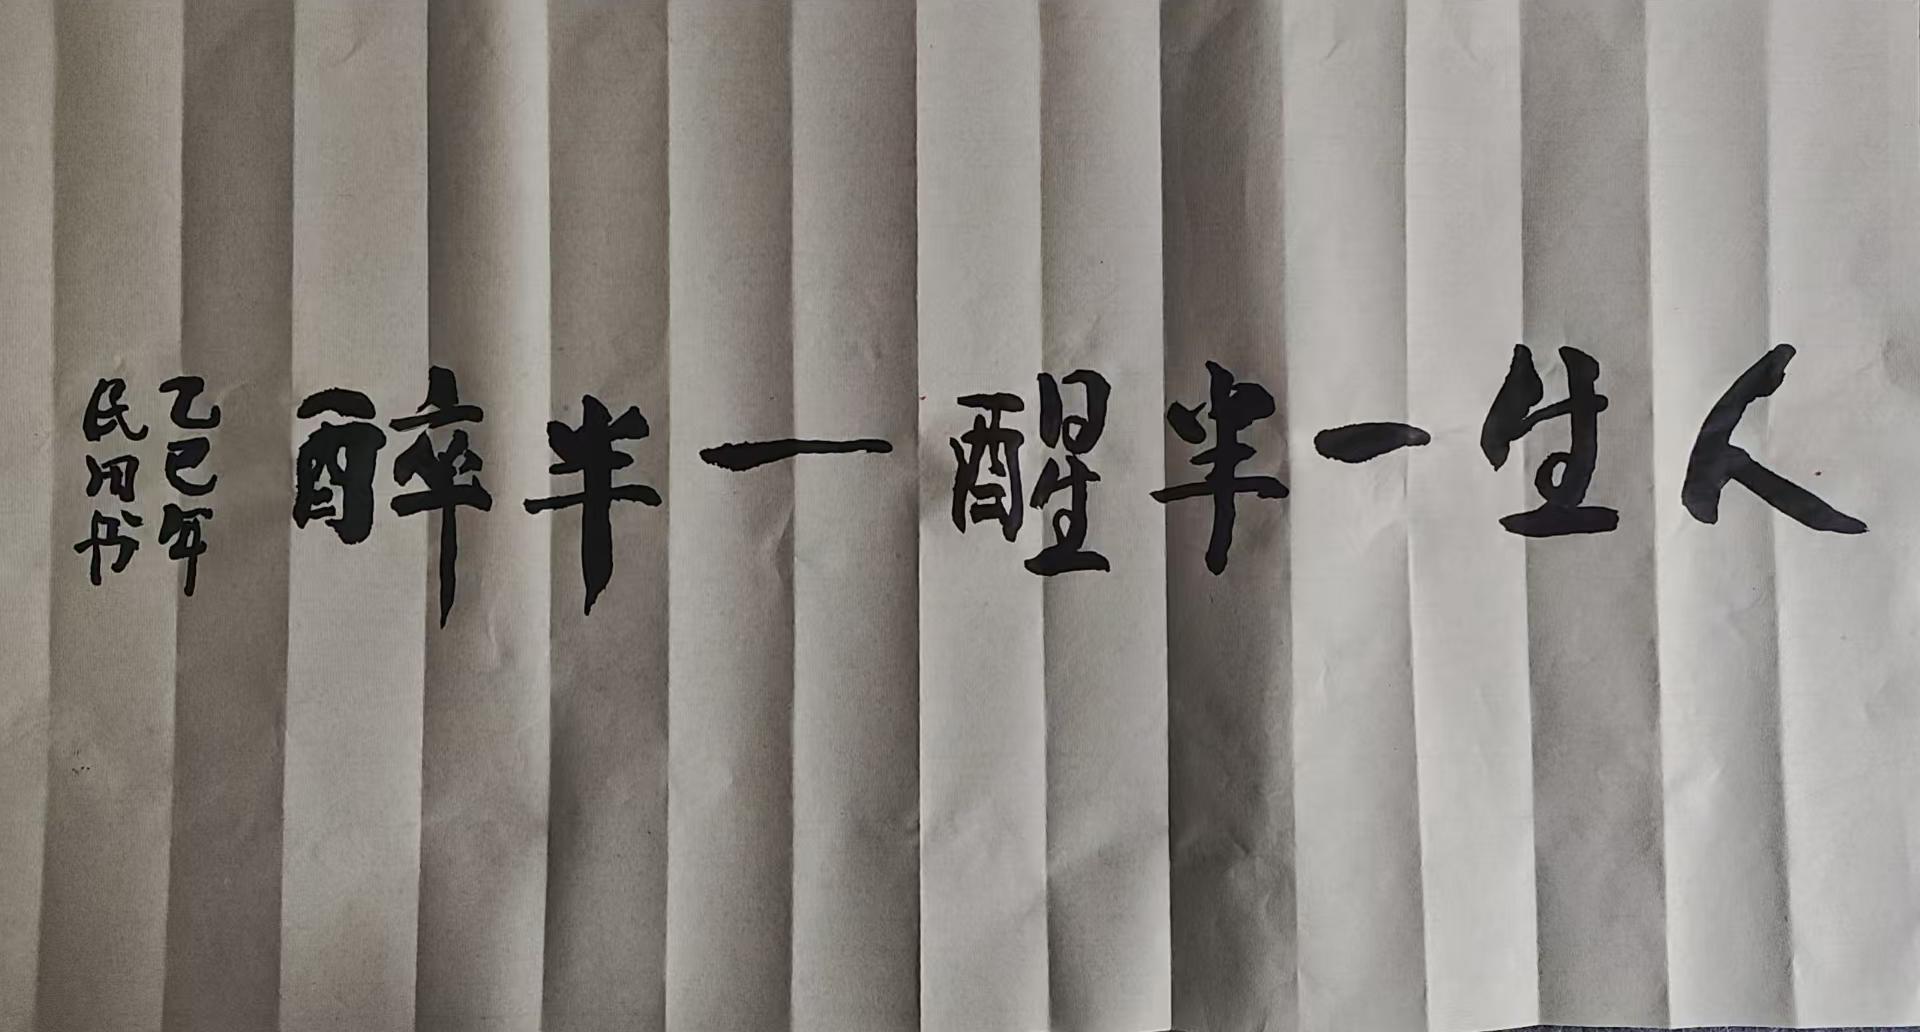 人生一半醒一半醉
乙巳年
民田书